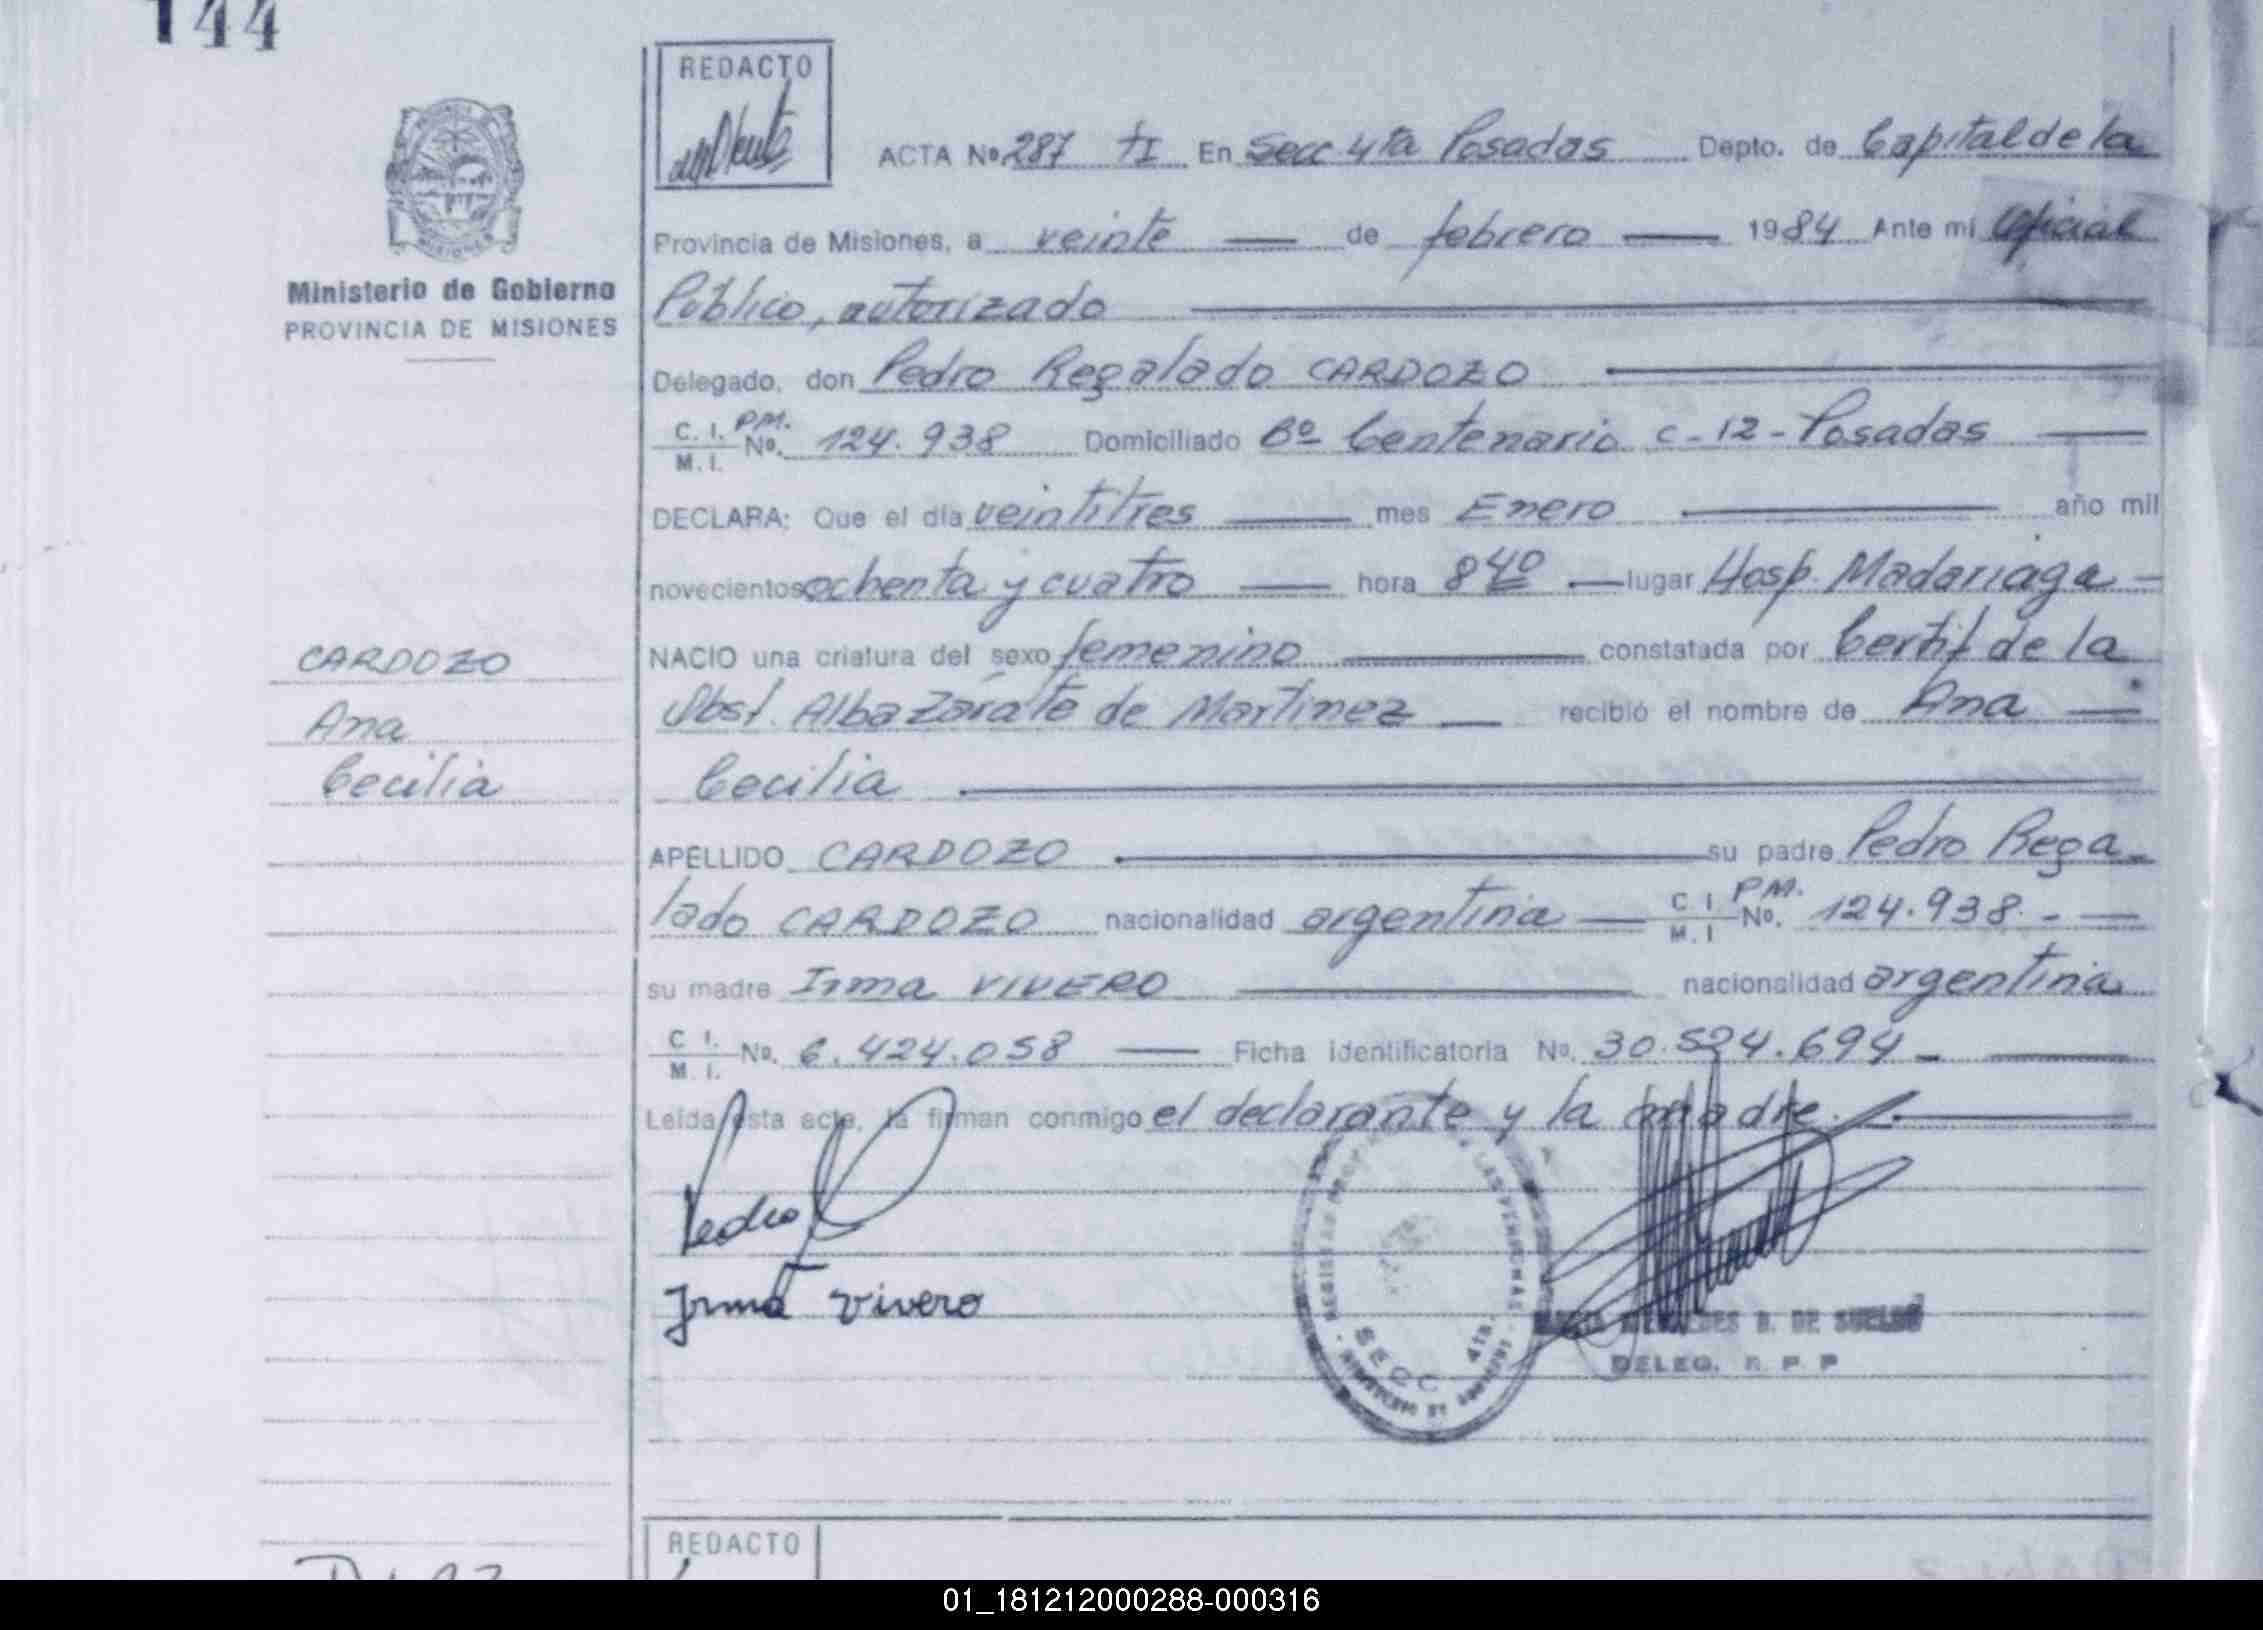 144
REDACTO
ACTA Nº 287 tI En Secc 4ta Posadas Depto. de Capital de la
Provincia de Misiones, a veinte de febrero 1984 Ante mi Oficial
Público, autorizado
Delegado, don Pedro Regalado CARDOZO
C. I. PM.
M. I. Nº. 124.938 Domiciliado Bº Centenario c-12-Posadas
DECLARA: Que el día veintitres mes Enero año mil
novecientos ochenta y cuatro hora 8 40 lugar Hosp. Madariaga
NACIO una criatura del sexo femenino constatada por Certif de la
Obst. Alba Zárate de Martinez recibió el nombre de Ana
Cecilia
APELLIDO CARDOZO su padre Pedro Rega
lado CARDOZO nacionalidad argentina C I PM. M. I Nº. 124.938.-
su madre Irma VIVERO nacionalidad argentina
C I. M. I. Nº. 6.424.058 Ficha identificatoria Nº. 30.524.694-
Leída esta acta, la firman conmigo el declarante y la madre.
Pedro
Irma Vivero
SECC 4ta.
DE SUELDO
DELEG. R. P. P
Ministerio de Gobierno
PROVINCIA DE MISIONES
CARDOZO
Ana
Cecilia
REDACTO
01_181212000288-000316